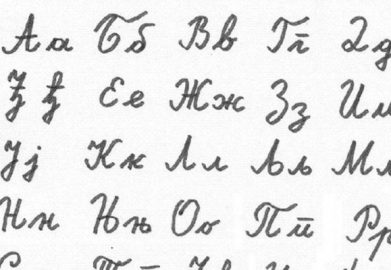 А а Б б В в Г г Д д
Ђ ђ Е е Ж ж З з И и
Ј ј К к Л л Љ љ М м
Н н Њ њ О о П п Р р